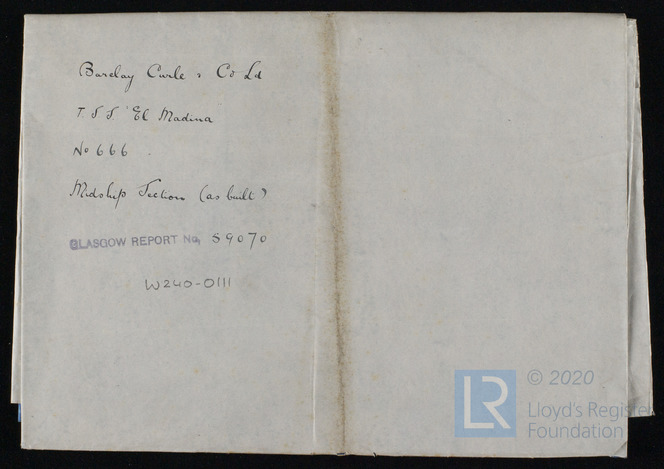 Barclay Curle & Co Ld
T.S.S. "El Madina
No 666
Midship Section (as built)
GLASGOW REPORT No, 59070
W240-0111
LR
© 2020
Lloyd's Register
Foundation